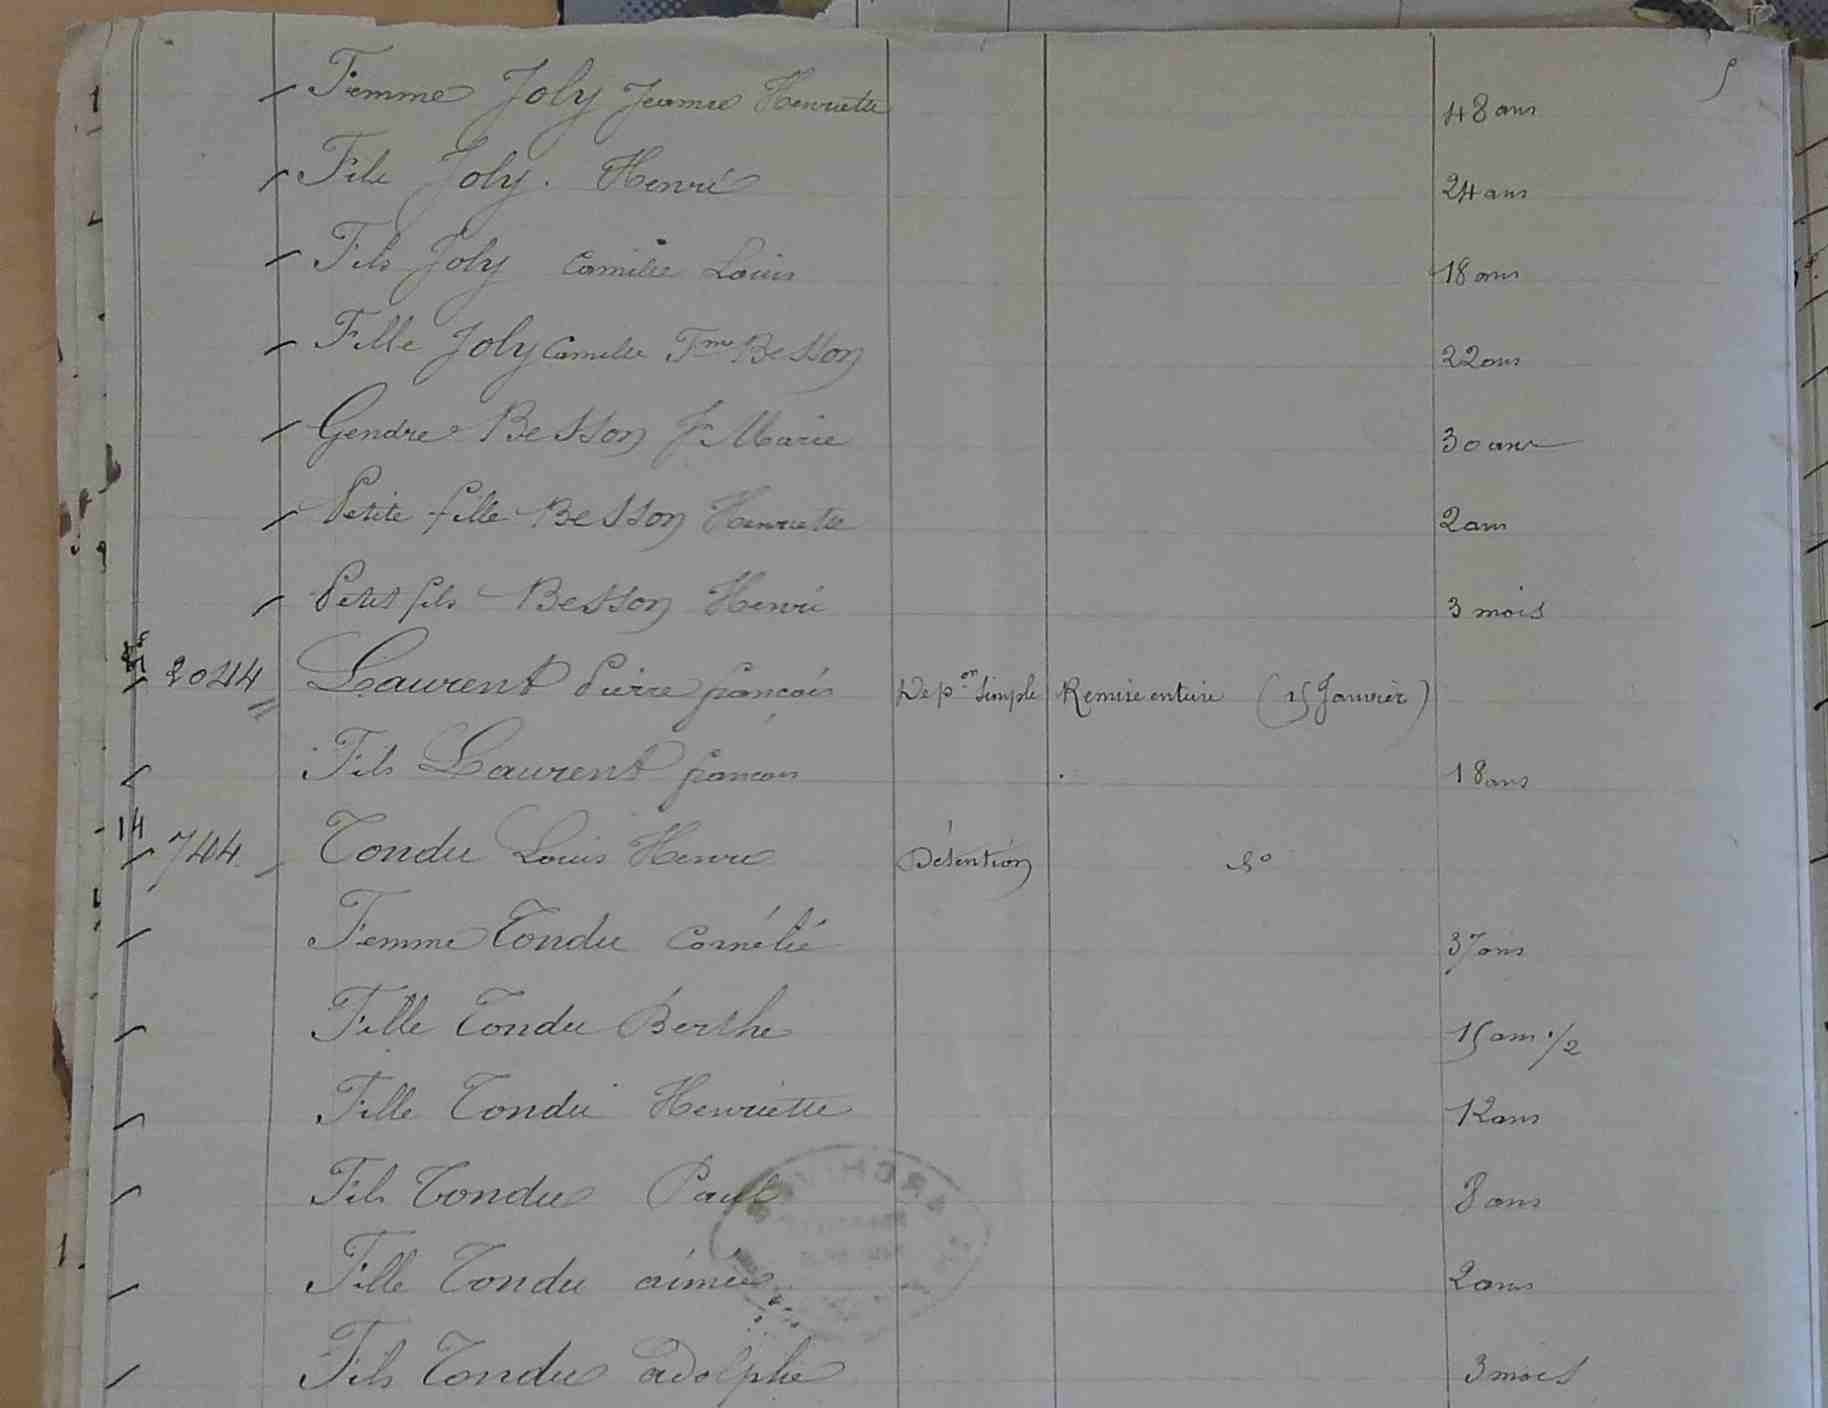 Femme Joly Jeanne Henriette 48 ans
Fils Joly. Henri 24 ans
Fils Joly Camille Louis 18 ans
Fille Joly Camille Fme Besson 22 ans
Gendre Besson Jn Marie 30 ans
Petite fille Besson Henriette 2 ans
Petit fils Besson Henri 3 mois
2044 Laurent Pierre françois Dépon Simple Remise entière (15 Janvier)
Fils Laurent françois 18 ans
14
744 Tondu Louis Henri Détention do
Femme Tondu Cornélie 37 ans
Fille Tondu Berthe 15 ans 1/2
Fille Tondu Henriette 12 ans
Fils Tondu Paul 8 ans
Fille Tondu aimée 2 ans
Fils Tondu adolphe 3 mois